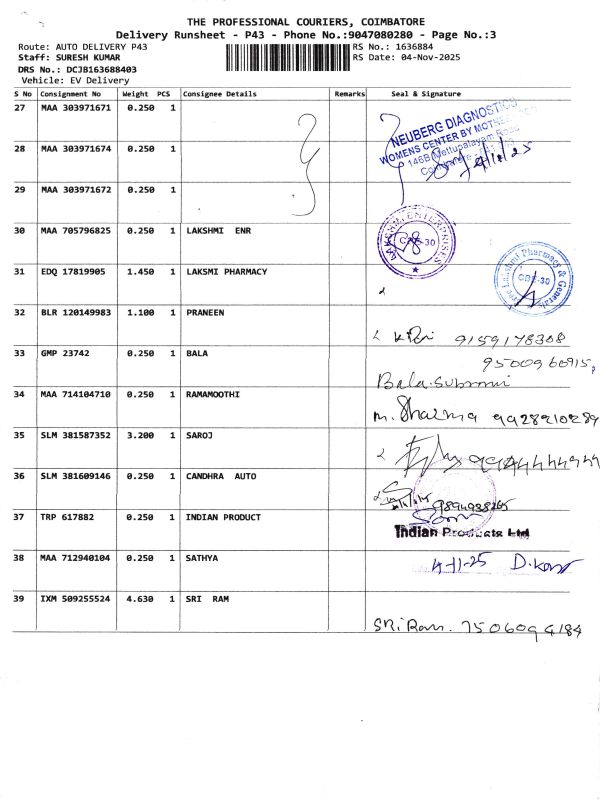 THE PROFESSIONAL COURIERS, COIMBATORE
Delivery Runsheet - P43 - Phone No.:9047080280 - Page No.:3
Route: AUTO DELIVERY P43 RS No.: 1636884
Staff: SURESH KUMAR RS Date: 04-Nov-2025
DRS No.: DCJB163688403
Vehicle: EV Delivery
S No Consignment No Weight PCS Consignee Details Remarks Seal & Signature
27 MAA 303971671 0.250 1
NEUBERG DIAGNOSTICS
WOMENS CENTER BY
146B Mettupalayam Road
28 MAA 303971674 0.250 1
29 MAA 303971672 0.250 1
30 MAA 705796825 0.250 1 LAKSHMI ENR
LAKSHMI ENTERPRISES
CBE-30
31 EDQ 17819905 1.450 1 LAKSMI PHARMACY
Sree Lakshmi Pharmacy & Generals
CBE-30
32 BLR 120149983 1.100 1 PRANEEN
9159178308
33 GMP 23742 0.250 1 BALA
9500960915,
34 MAA 714104710 0.250 1 RAMAMOOTHI
M. Sharma 9928910289
35 SLM 381587352 3.200 1 SAROJ
36 SLM 381609146 0.250 1 CANDHRA AUTO
37 TRP 617882 0.250 1 INDIAN PRODUCT
Indian Products Ltd
38 MAA 712940104 0.250 1 SATHYA
4-11-25
39 IXM 509255524 4.630 1 SRI RAM
SRi Ram. 7506094184